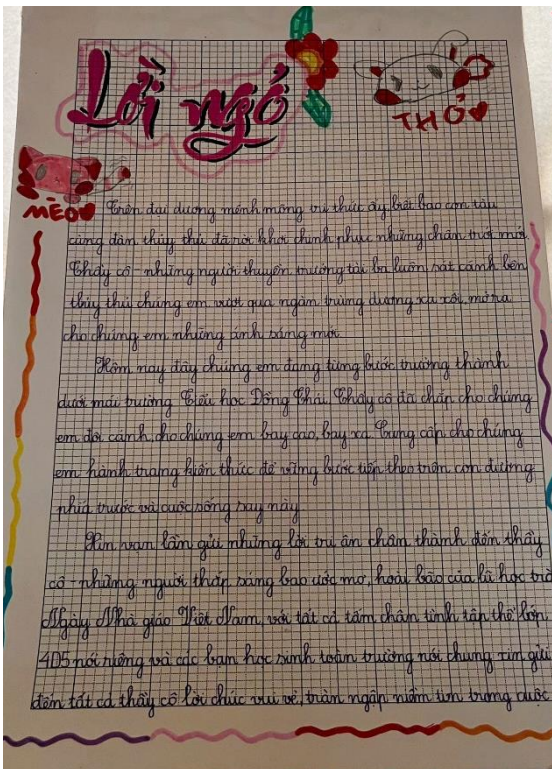 Lời ngỏ
THỎ
MÈO
Trên đại dương mênh mông tri thức ấy biết bao con tàu
cùng dàn thủy thủ đã rời khơi chinh phục những chân trời mới.
Thầy cô - những người thuyền trưởng tài ba luôn sát cánh bên
thủy thủ chúng em vượt qua ngàn trùng dương xa xôi, mở ra
cho chúng em những ánh sáng mới.
Hôm nay đây chúng em đang từng bước trưởng thành
dưới mái trường Tiểu học Đồng Thái. Thầy cô đã chắp cho chúng
em đôi cánh, cho chúng em bay cao, bay xa. Cung cấp cho chúng
em hành trang kiến thức để vững bước tiếp theo trên con đường
phía trước và cuộc sống say này.
Xin vạn lần gửi những lời tri ân chân thành đến thầy
cô - những người thắp sáng bao ước mơ, hoài bão của lũ học trò
Ngày Nhà giáo Việt Nam, với tất cả tấm chân tình tập thể lớp
4D5 nói riêng và các bạn học sinh toàn trường nói chung xin gửi
đến tất cả thầy cô lời chúc vui vẻ, tràn ngập niềm tin trong cuộc